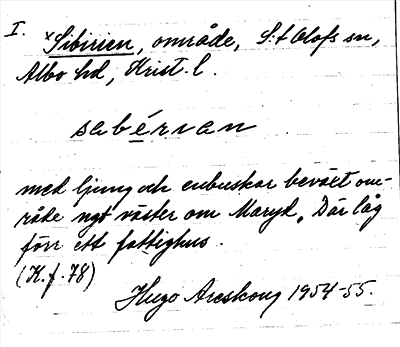 I. ˣSibirien, område, S:t Olofs sn,
Albo hd, Krist. l.
sabérnan
med ljung och enbuskar beväxt om-
råde ngt väster om Maryd. Där låg
förr ett fattighus.
(K.f. 78)
Hugo Areskoug 1954-55.